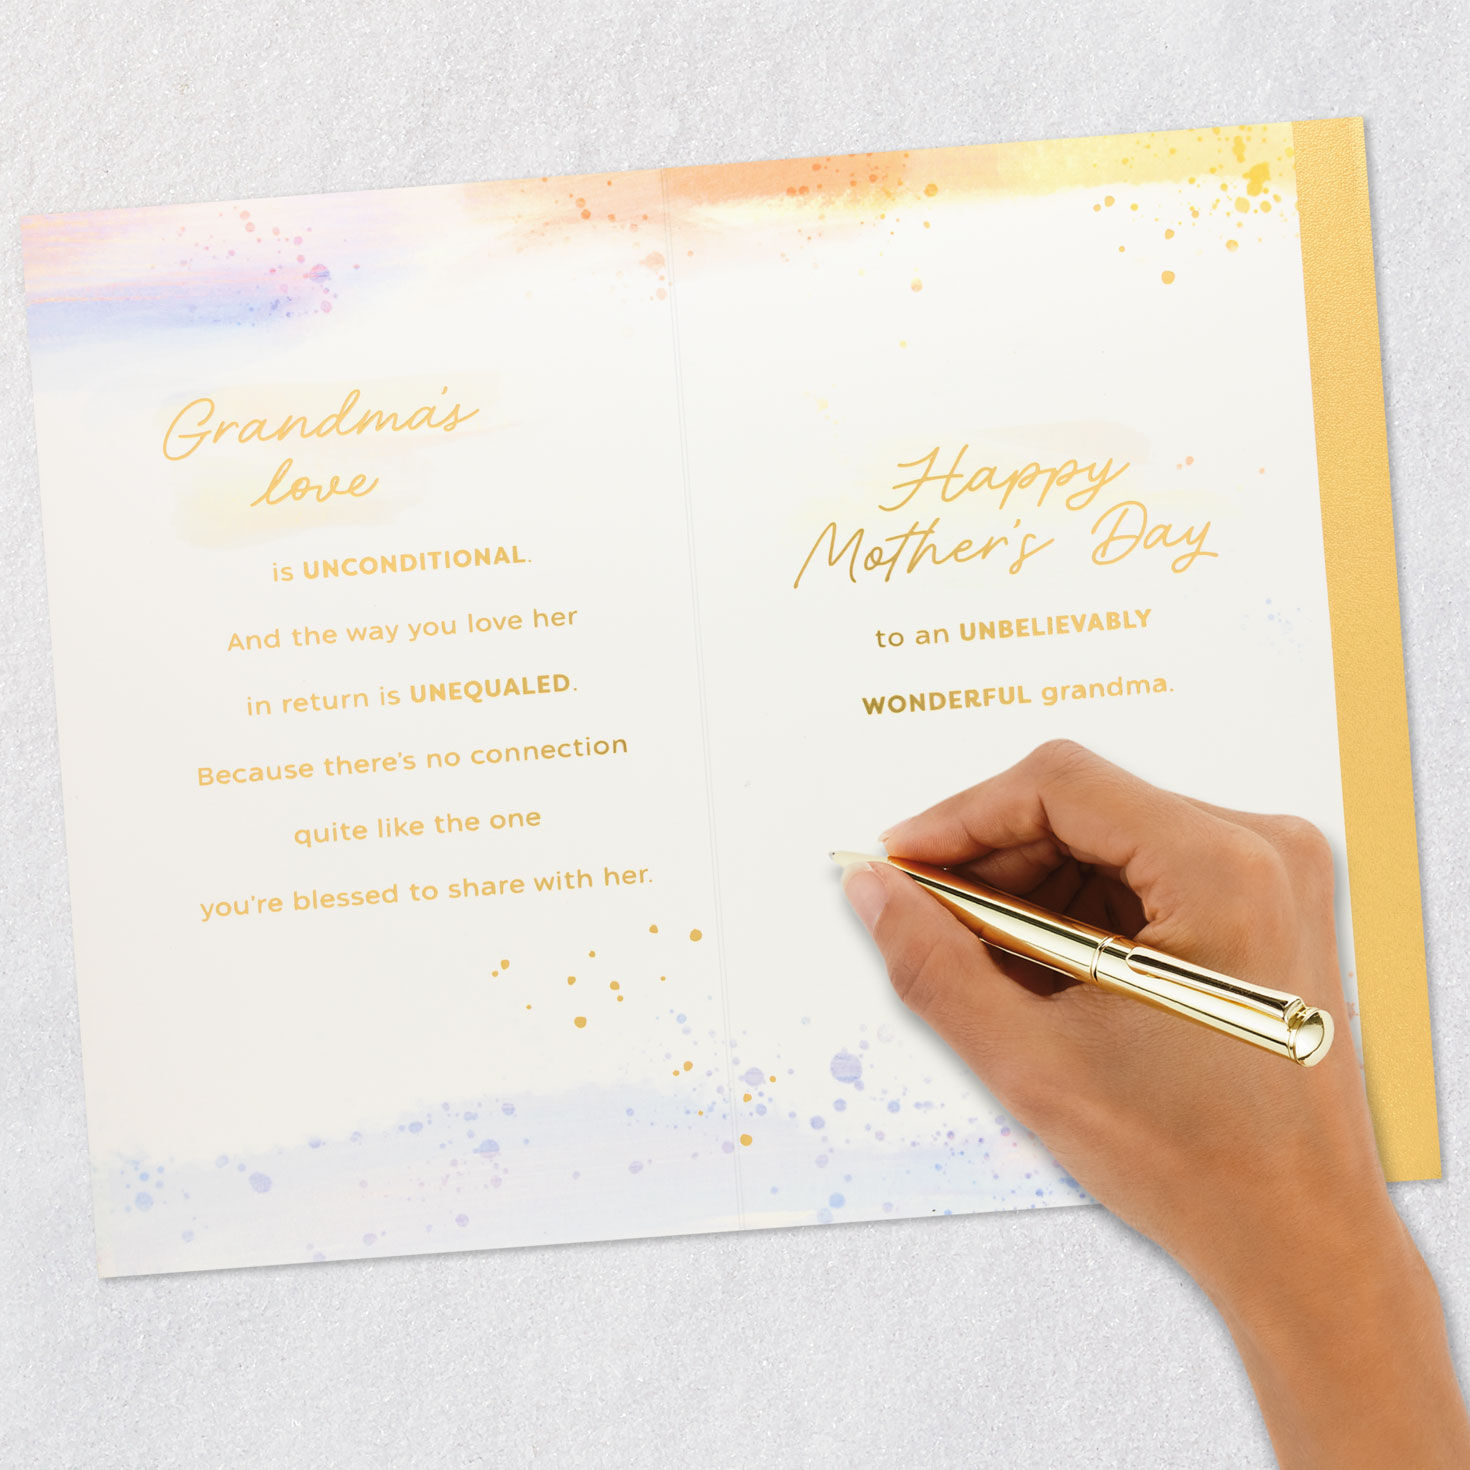 Grandma's
love
is UNCONDITIONAL.
And the way you love her
in return is UNEQUALED.
Because there's no connection
quite like the one
you're blessed to share with her.
Happy
Mother's Day
to an UNBELIEVABLY
WONDERFUL grandma.